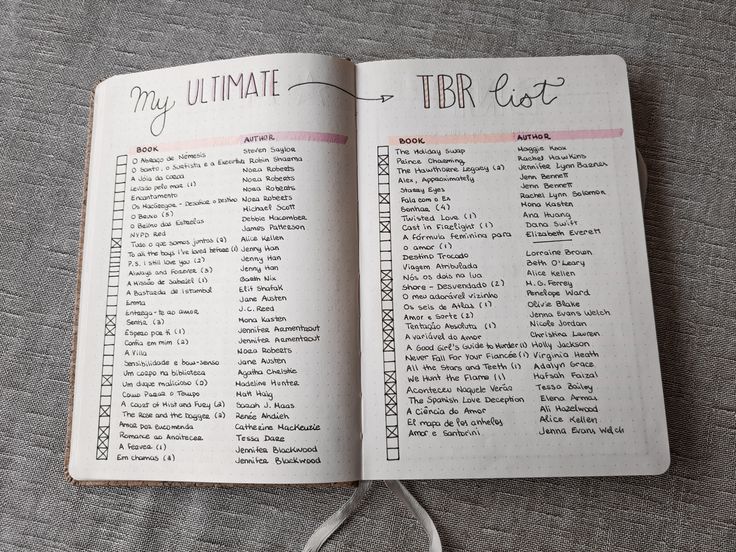 My ULTIMATE → TBR list
BOOK AUTHOR
O Abraço de Némesis Steven Saylor
O Santo, o Surfista e a Executiva Robin Sharma
A Jóia da Coroa Nora Roberts
Levado pelo mar (1) Nora Roberts
Encantamento Nora Roberts
Os MacGregor - Desafiar o destino Nora Roberts
O Beijo (5) Michael Scott
O Beijo das Estrelas Debbie Macomber
NYPD Red James Patterson
Tudo o que somos juntos (2) Alice Kellen
To all the boys I've loved before (1) Jenny Han
P.S. I still love you (2) Jenny Han
Always and Forever (3) Jenny Han
A Missão de Sabriel (1) Garth Nix
A Bastarda de Istambul Elif Shafak
Emma Jane Austen
Entrega-te ao amor J.C. Reed
Sentir (3) Mona Kasten
Espero por ti (1) Jennifer Armentrout
Confia em mim (2) Jennifer Armentrout
A Villa Nora Roberts
Sensibilidade e bom-senso Jane Austen
Um corpo na biblioteca Agatha Christie
Um duque malicioso (2) Madeline Hunter
Como Parar o Tempo Matt Haig
A Court of Mist and Fury (2) Sarah J. Maas
The Rose and the Dagger (2) Renée Ahdieh
Amor por Encomenda Catherine MacKenzie
Romance ao Anoitecer Tessa Dare
A Fraver (1) Jennifer Blackwood
Em chamas (2) Jennifer Blackwood
BOOK AUTHOR
The Holiday Swap Maggie Knox
Prince Charming Rachel Hawkins
The Hawthorne Legacy (2) Jennifer Lynn Barnes
Alex, Approximately Jenn Bennett
Starry Eyes Jenn Bennett
Fala com o Ex Rachel Lynn Solomon
Sonhar (4) Mona Kasten
Twisted Love (1) Ana Huang
Cast in Firelight (1) Dana Swift
A fórmula feminina para Elizabeth Everett
o amor (1)
Destino Trocado Lorraine Brown
Viagem Atribulada Beth O'Leary
Nós os dois na lua Alice Kellen
Shore - Desvendado (2) M.G. Ferrey
O meu adorável vizinho Penelope Ward
Os seis de Atlas (1) Olivie Blake
Amor e Sorte (2) Jenna Evans Welch
Tentação Absoluta (1) Nicole Jordan
A variável do Amor Christina Lauren
A Good Girl's Guide to Murder (1) Holly Jackson
Never Fall For Your Fiancée (1) Virginia Heath
All the Stars and Teeth (1) Adalyn Grace
We Hunt the Flame (1) Hafsah Faizal
Aconteceu Naquele Verão Tessa Bailey
The Spanish Love Deception Elena Armas
A Ciência do Amor Ali Hazelwood
El mapa de los anhelos Alice Kellen
Amor e Santorini Jenna Evans Welch